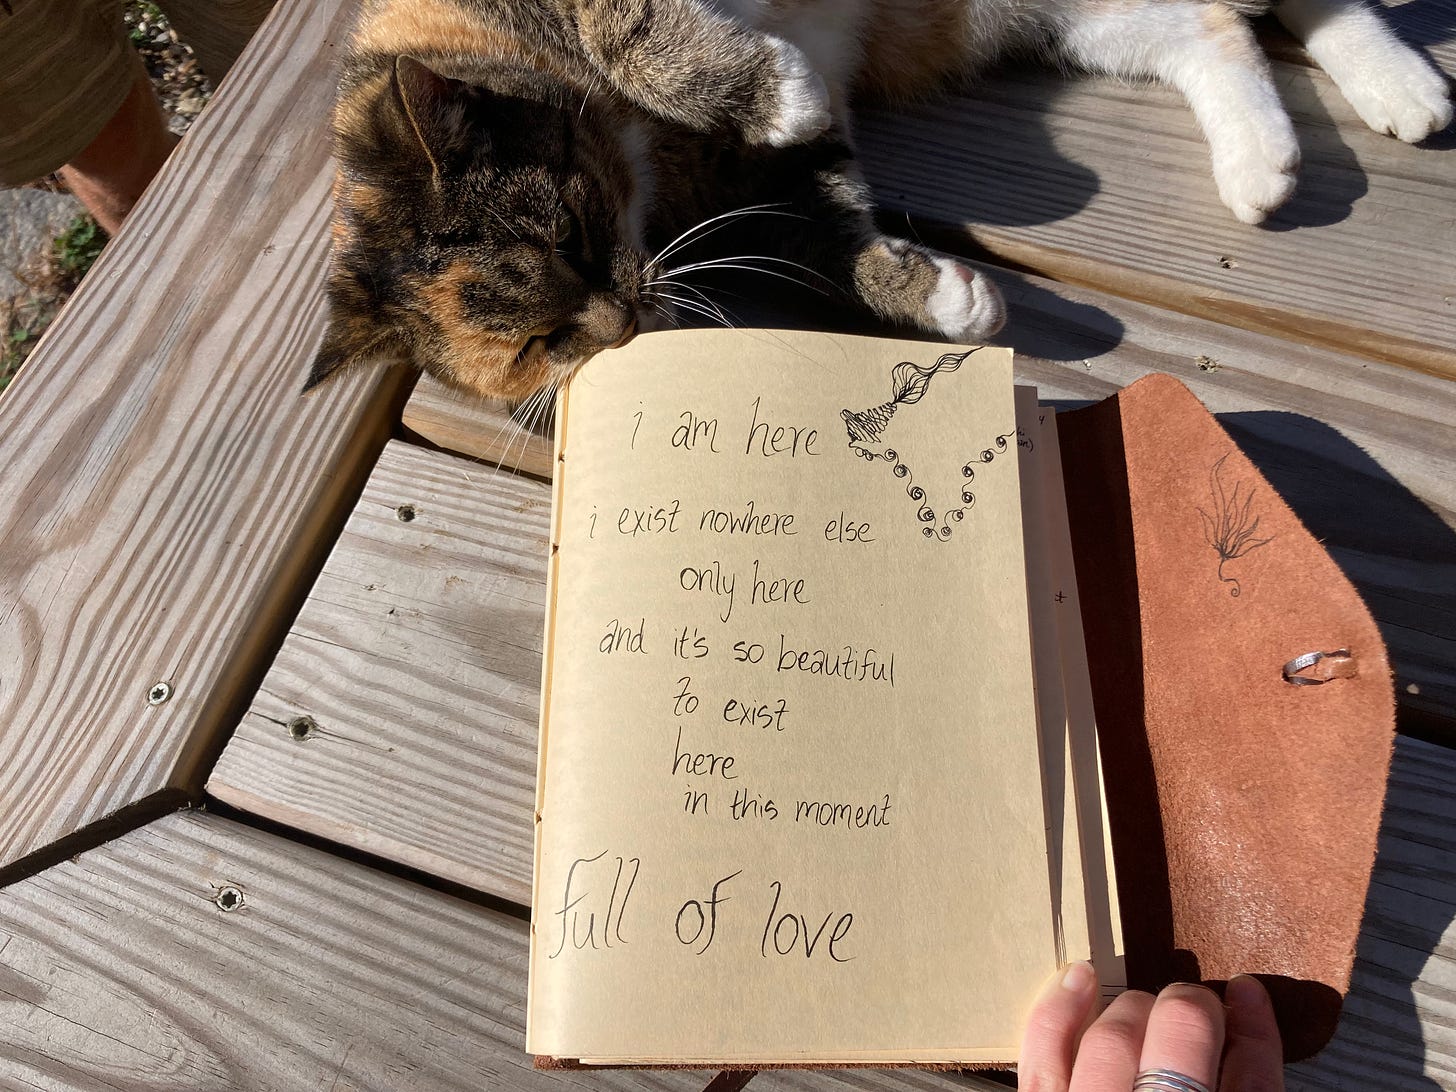 i am here
i exist nowhere else
only here
and it's so beautiful
to exist
here
in this moment
full of love